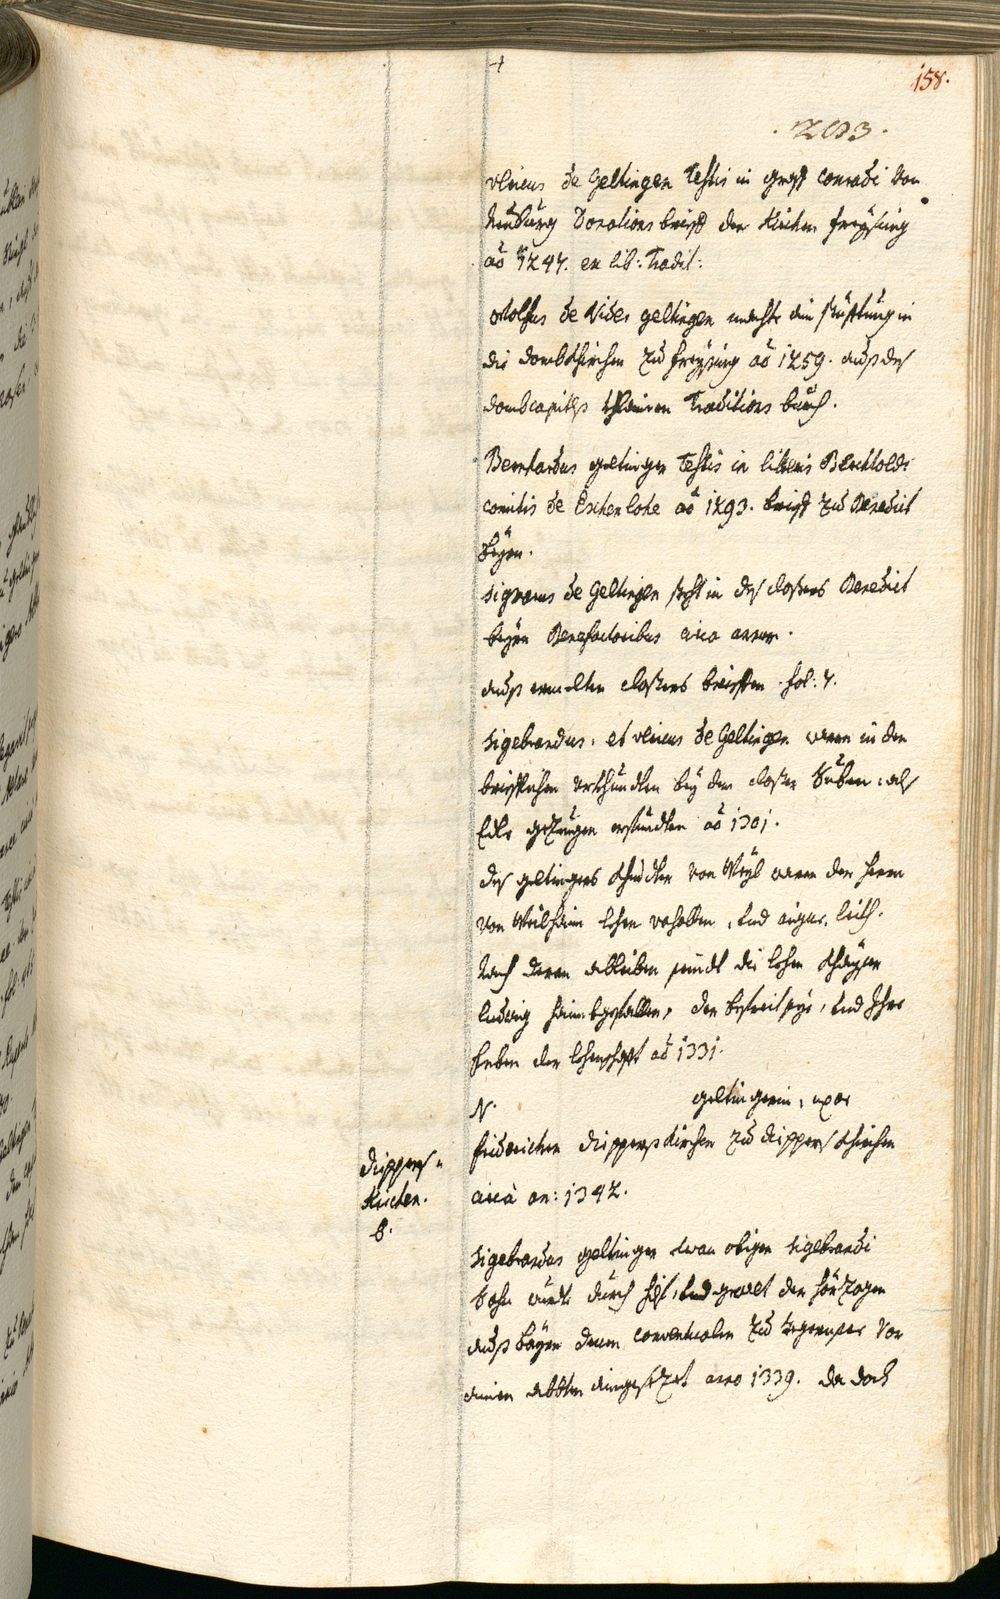 158.
203.
vlricus de Geltingen Testis in graff Conradi von
Neuburg Donations brieff der Kirchen Freysing
aõ 1247. ex lib: Tradit:
Ortolfus de Nider geltingen machte ein stüfftung in
die dombkhirchen zu Freysing aõ 1259. auß des
dombcapitls khlainen Traditions buech.
Bernhardus geltinger Testis in literis Berchtoldi
comitis de Eschenlohe aõ 1293. brieff zu Benedict
beyrn.
Sigmarus de Geltingen steht in des closters Benedict
beyrn Benefactoribus circa annum.
auß ermelten closters brieffen. fol: 7.
Sigebrandus, et vlricus de Geltingen waren in den
briefflichen vrkhundten bey dem closter Süben, als
Edle gezeugen erfundten aõ 1301.
des geltingers khinder von Weyl waren der herrn
von Weilhaim lehen, vnd aigne leith.
Nach deren ableiben seindt die lehen Khayser
Ludwig haimbgefallen, der befreit sye, vnd Ihre
Erben der lehenschafft aõ 1331.
N. geltingerin, uxor
Friderichen dieppers Kirchen zu dieppers Khirchen
circà an: 1342.
diepers=
Kirchen.
B.
Sigebrandus geltinger etwan obigen Sigebrandi
Sohn wurdt durch hilf, vnd gewalt der hörzogen
auß Bayrn denen conventualen zu Tegernsee vor
einen abbten eingesezt anno 1339. der doch